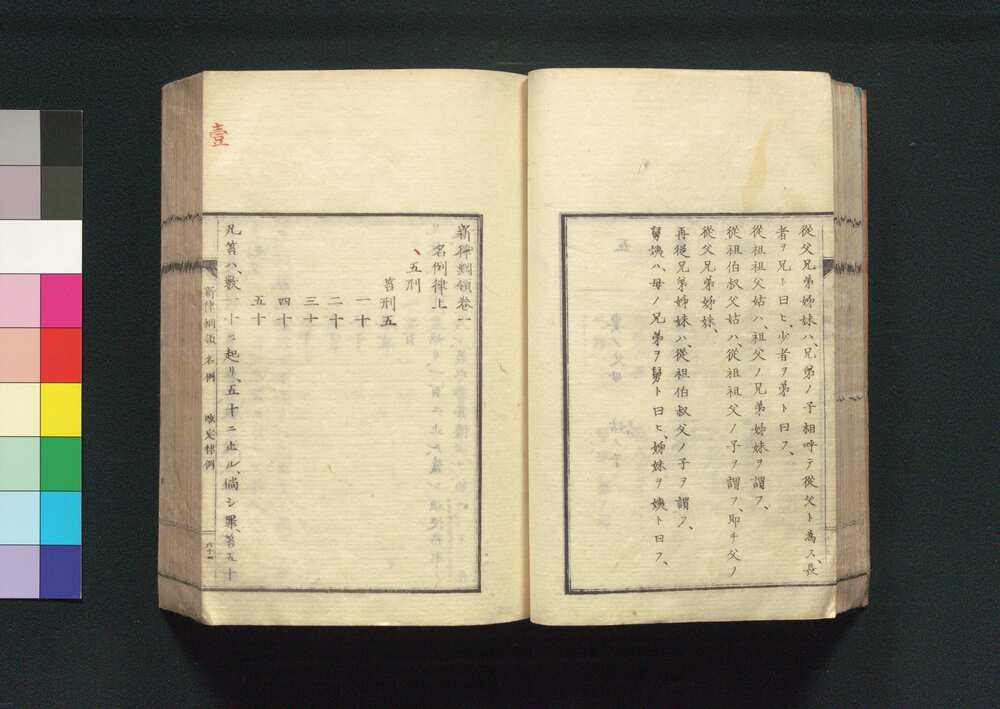 從父兄弟姊妹ハ、兄弟ノ子相呼テ從父ト為ス、長
者ヲ兄ト曰ヒ、少者ヲ弟ト曰フ、
從祖祖父姑ハ、祖父ノ兄弟姊妹ヲ謂フ、
從祖伯叔父姑ハ、從祖祖父ノ子ヲ謂フ、即チ父ノ
從父兄弟姊妹、
再從兄弟姊妹ハ、從祖伯叔父ノ子ヲ謂フ、
舅姨ハ、母ノ兄弟ヲ舅ト曰ヒ、姊妹ヲ姨ト曰フ、
壹
新律綱領卷一
名例律上
五刑
笞刑五
一十
二十
三十
四十
五十
凡笞ハ、數一十ニ起リ、五十ニ止ル、倘シ罪、笞五十
新律綱領 名例 改定律例